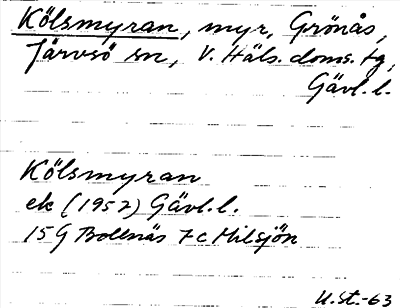 Kölsmyran, myr, Grönås,
Järvsö sn, V. Häls. doms. tg,
Gävl. l.
Kölsmyran
ek (1957) Gävl. l.
15G Bollnäs 7c Milsjön
U.St.-63